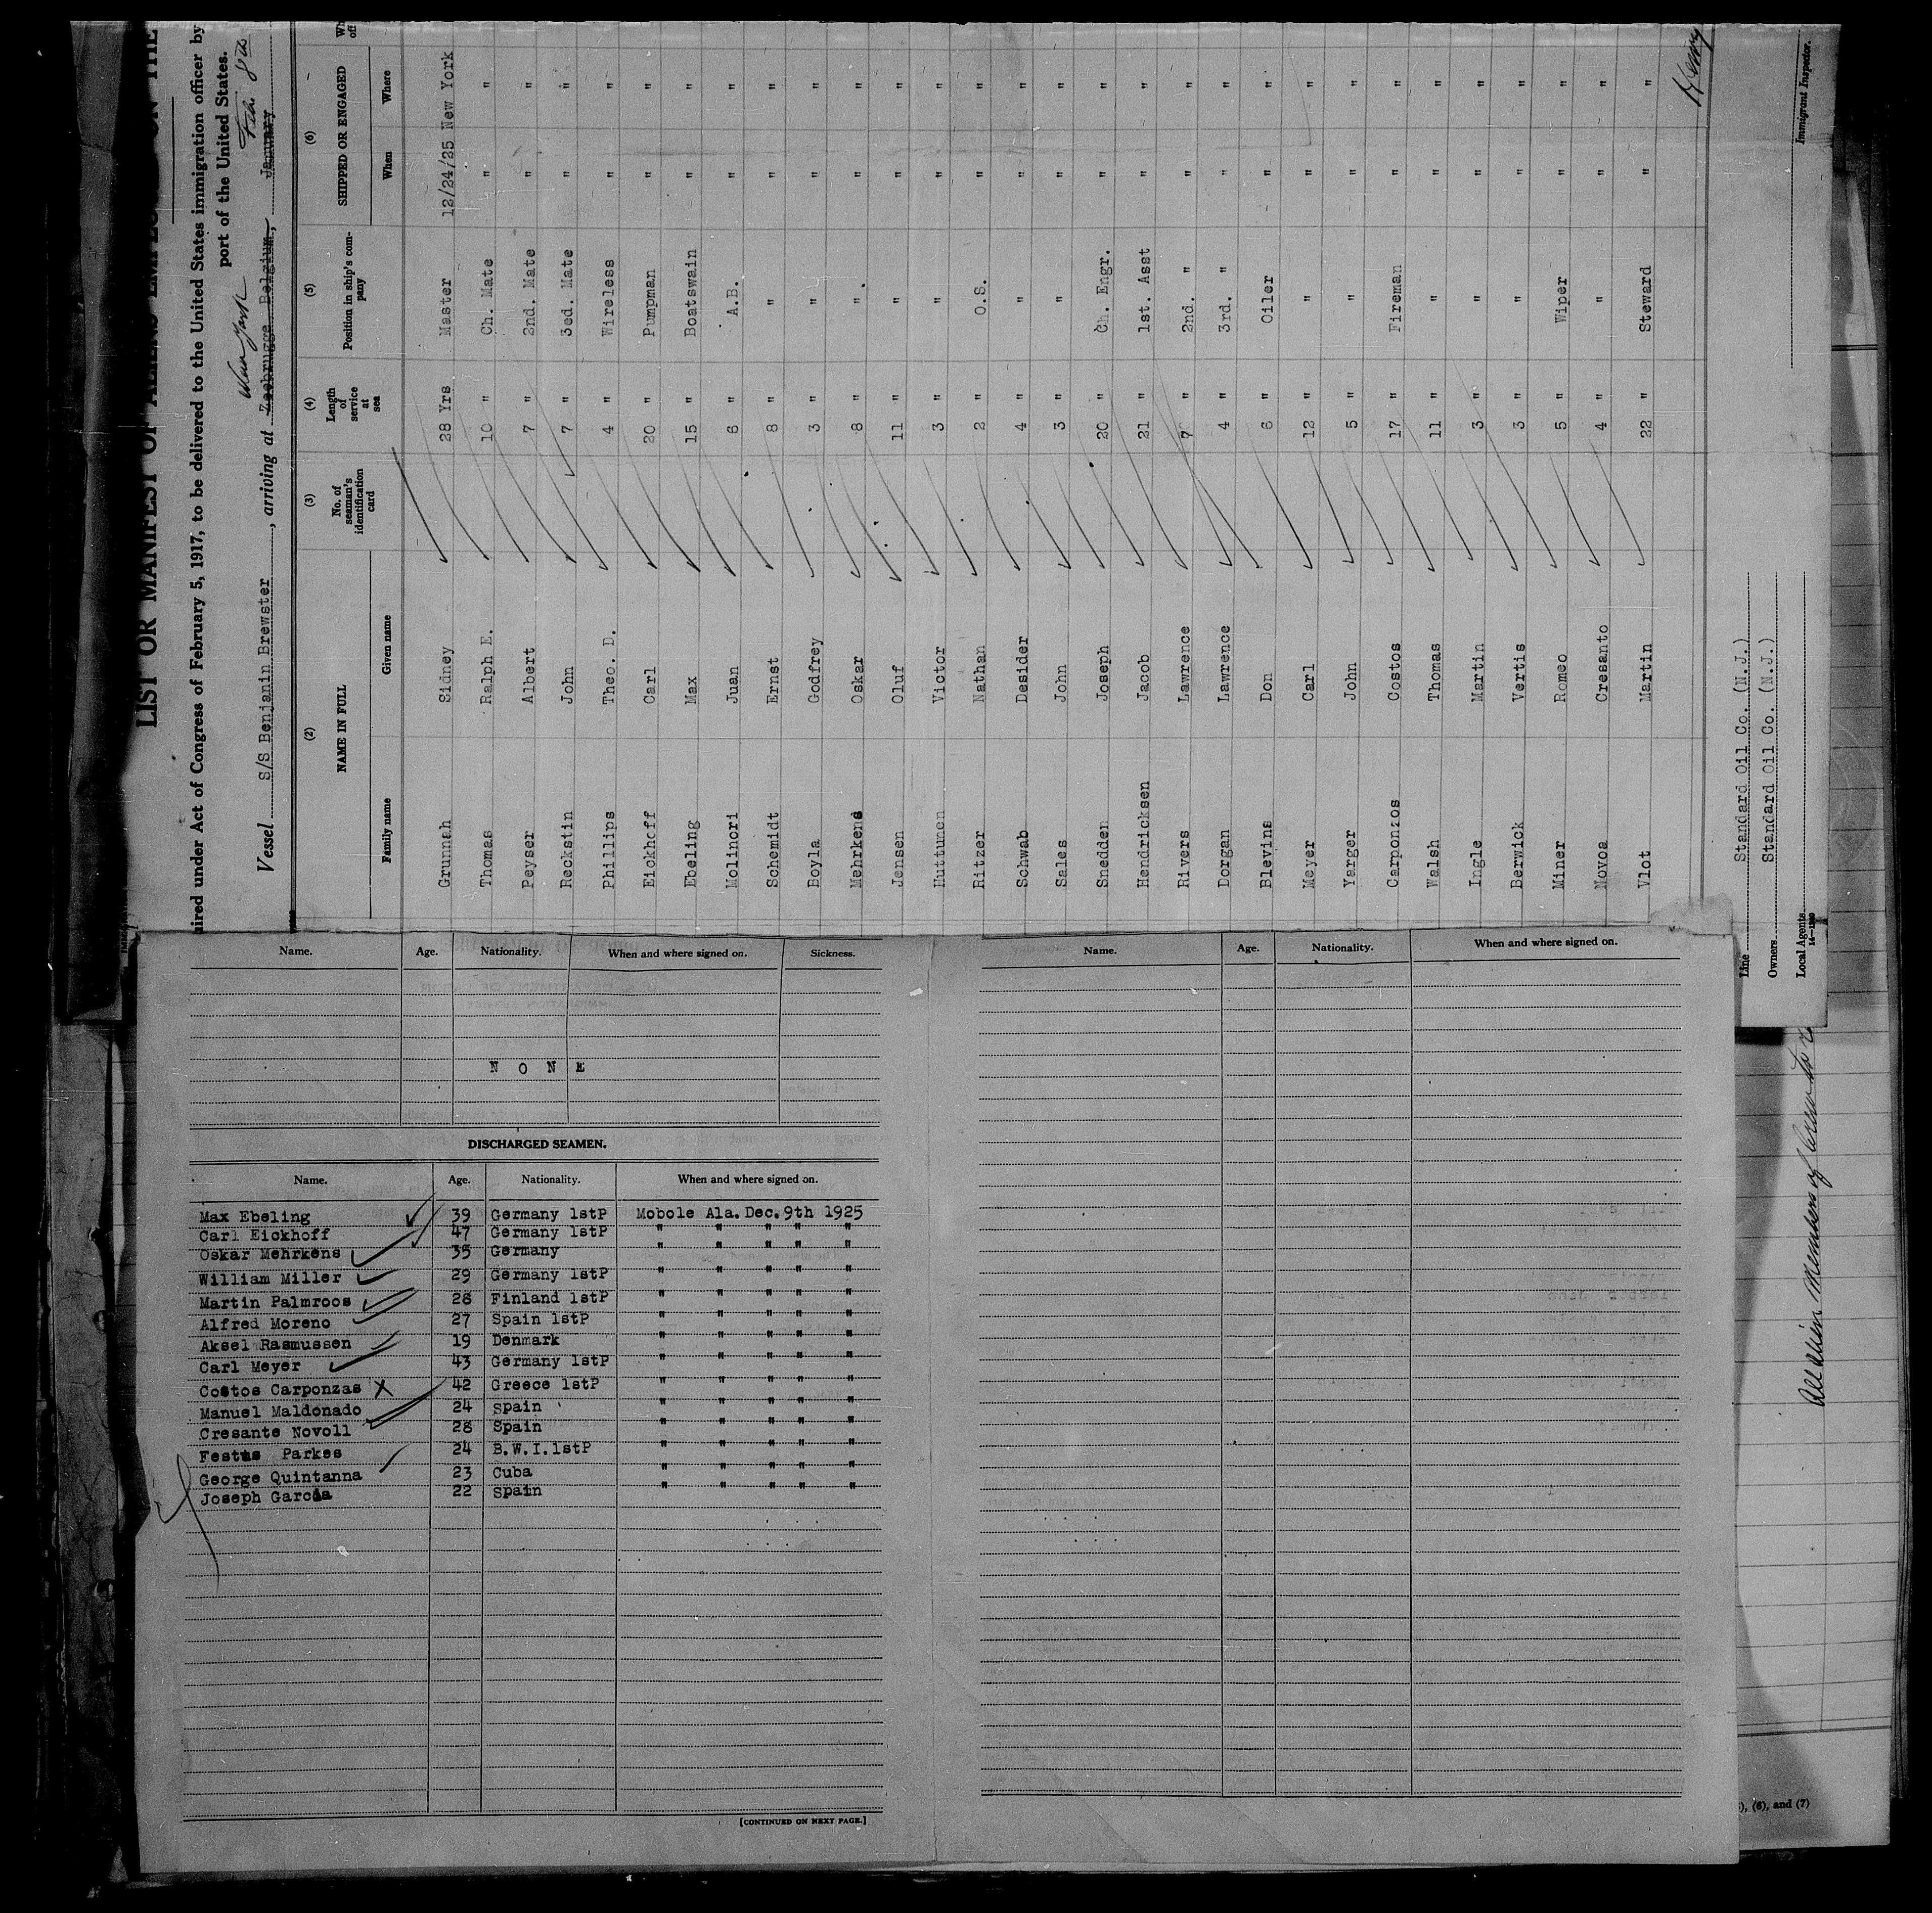 LIST OR MANIFEST OF ALIENS EMPLO ON THE
ired under Act of Congress of February 5, 1917, to be delivered to the United States immigration officer by
port of the United States.
New York Feb 8th
Vessel S/S Benjamin Brewster, arriving at Zeebrugge Belgium, January
(2) (3) (4) (5) (6)
NAME IN FULL No. of seaman's identification card Length of service at sea Position in ship's company SHIPPED OR ENGAGED
Family name Given name When Where
Grunnah Sidney 28 Yrs Master 12/24/25 New York
Thomas Ralph E. 10 " Ch. Mate " "
Peyser Albert 7 " 2nd. Mate " "
Reckstin John 7 " 3ed. Mate " "
Phillips Theo. D. 4 " Wireless " "
Eickhoff Carl 20 " Pumpman " "
Ebeling Max 15 " Boatswain " "
Molinori Juan 6 " A.B. " "
Schemidt Ernst 8 " " " "
Boyla Godfrey 3 " " " "
Mehrkens Oskar 8 " " " "
Jensen Oluf 11 " " " "
Huttunen Victor 3 " " " "
Ritzer Nathan 2 " O.S. " "
Schwab Desider 4 " " " "
Sales John 3 " " " "
Snedden Joseph 20 " Ch. Engr. " "
Hendricksen Jacob 21 " 1st. Asst " "
Rivers Lawrence 7 " 2nd. " " "
Dorgan Lawrence 4 " 3rd. " " "
Blevins Don 6 " Oiler " "
Meyer Carl 12 " " " "
Yarger John 5 " " " "
Carponzos Costos 17 " Fireman " "
Walsh Thomas 11 " " " "
Ingle Martin 3 " " " "
Berwick Vertis 3 " " " "
Miner Romeo 5 " Wiper " "
Novoa Cresanto 4 " " " "
Vlot Martin 22 " Steward " "
Henry
Line Standard Oil Co. (N.J.)
Owners Standard Oil Co. (N.J.)
Local Agents
Immigrant Inspector.
Name. Age. Nationality. When and where signed on. Sickness.
N O N E
DISCHARGED SEAMEN.
Name. Age. Nationality. When and where signed on.
Max Ebeling 39 Germany 1stP Mobole Ala. Dec. 9th 1925
Carl Eickhoff 47 Germany 1stP " " " " "
Oskar Mehrkens 35 Germany " " " " "
William Miller 29 Germany 1stP " " " " "
Martin Palmroos 28 Finland 1stP " " " " "
Alfred Moreno 27 Spain 1stP " " " " "
Aksel Rasmussen 19 Denmark " " " " "
Carl Meyer 43 Germany 1stP " " " " "
Costos Carponzas X 42 Greece 1stP " " " " "
Manuel Maldonado 24 Spain " " " " "
Cresante Novoll 28 Spain " " " " "
Festus Parkes 24 B.W.I.1stP " " " " "
George Quintanna 23 Cuba " " " " "
Joseph Garcia 22 Spain " " " " "
[CONTINUED ON NEXT PAGE.]
Name. Age. Nationality. When and where signed on.
Members of crew to
), (6), and (7)